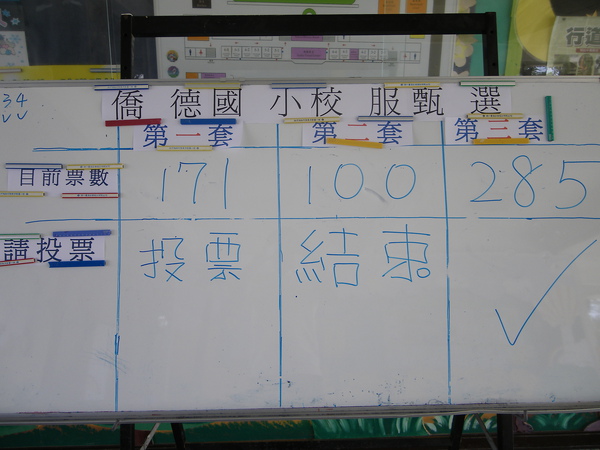 34
行道
僑德國小校服甄選
第一套 第二套 第三套
目前票數 171 100 285
請投票 投票 結束。